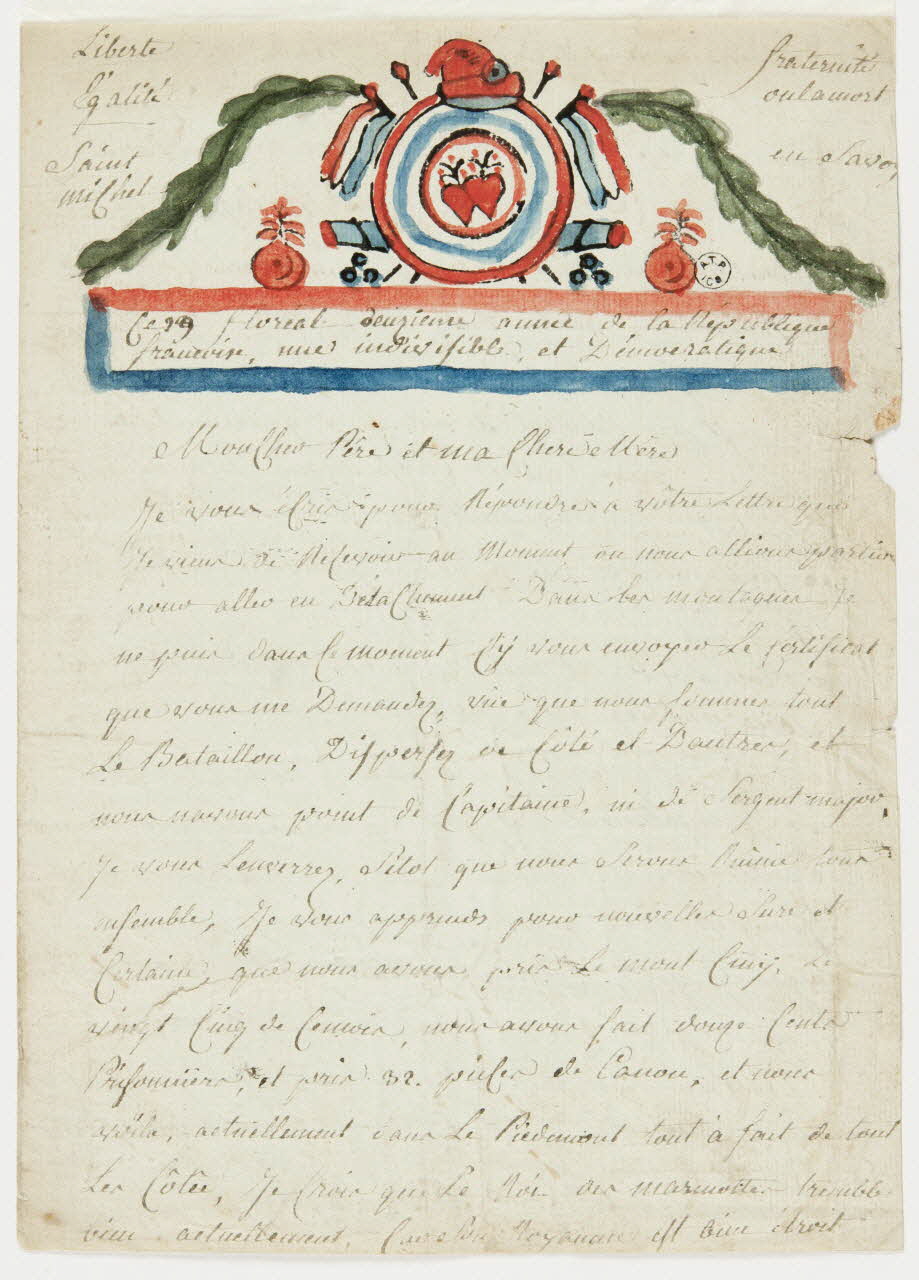 Liberté
Égalité
fraternité
oulamort
Saint
michel
en Savoy
A.T.P
Ce 29 floréal deuzieme annee de la République
francoise, une indivisible, et Démocratique
Mon Cher Père et ma Chere Mère
Je vous écris pour Répondre à vôtre Lettre que
Je viens de Recevoir au Moment ou nous allions partir
pour aller en Détachement Dans les montagnes Je
ne puis dans ce moment cy vous envoyer Le certificat
que vous me Demandez, vue que nous sommes tout
Le Bataillon, Dispersez de Côté et Dautres, et
nous navons point de Capitaine, ni de Sergent major,
Je vous Lenverrez, Sitot que nous Serons Réunie tous
ensemble, Je vous apprends pour nouvelles Sure et
Certaine, que nous avons pris Le mont Ciny, Le
vingt Cinq de Cemois, nous avons fait douze Cents
Prisonniers, et pris 32. pièces de Canon, et nous
voila, actuellement dans Le Piedmont tout à fait de tout
Les Côtée, Je Crois que Le Roi des marmotte tremble
bien actuellement, Car Son Royaume est bien étroit